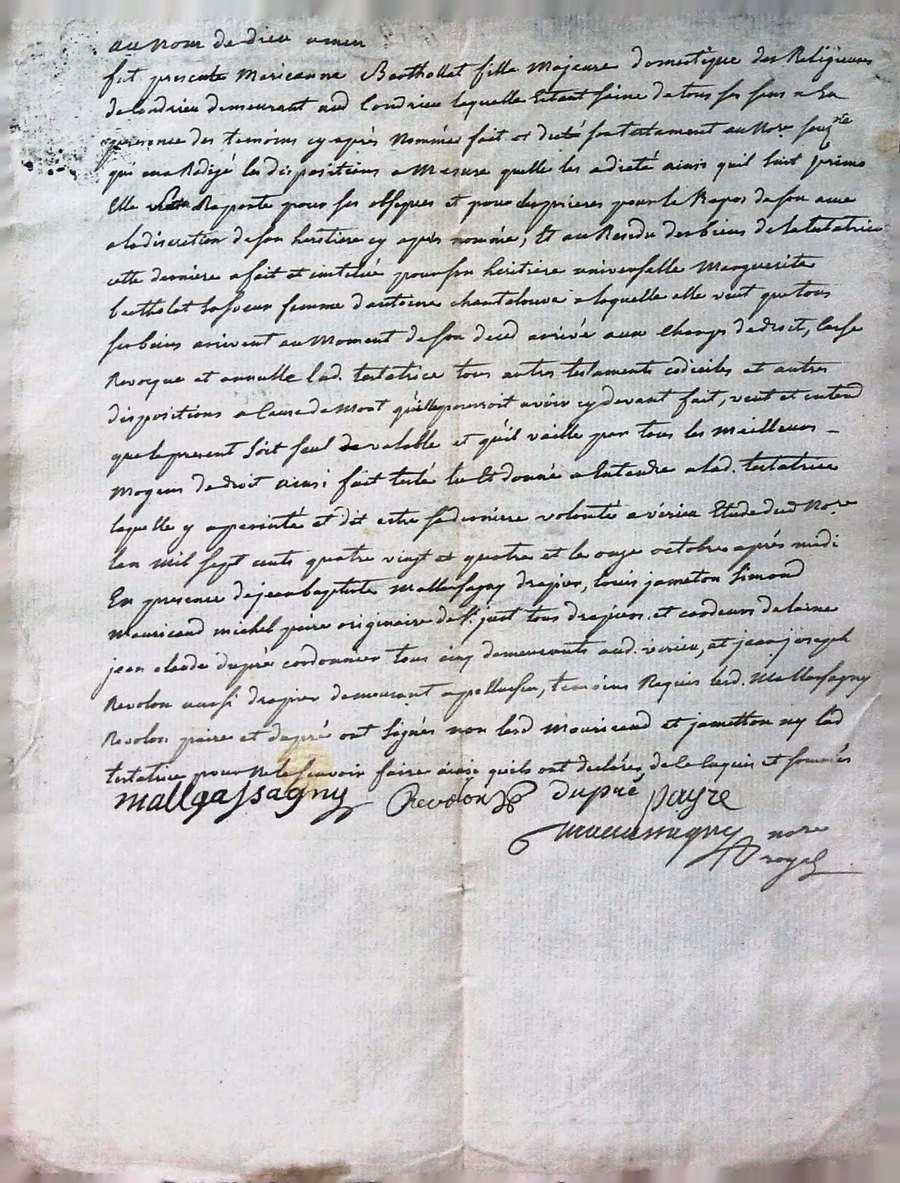 au nom de dieu amen
fut presente Marieanne Barthollet fille Majeure domestique des Religieuses
de Condrieu demeurant aud Condrieu laquelle Etant saine de tous ses sens a En
presence des temoins cy après Nommés fait et dicté son testament au Nore souz.né
qui en a Redigé les dispositions a Mesure quelle les a dicté ainsi quil suit
Elle Raporte pour ses obseques et pour des prieres pour le Repos de son ame
a la discretion de son heritiere cy après nommée, Et au Residu des biens de la testatrice
cette derniere a fait et institué pour son héritiere universelle Marguerite
bertholet Sa soeur femme d'antoine chantelouve a laquelle elle veut que tous
ses biens arrivent au Moment de son decd arrivé aux Charges de droit, Casse
Revocque et annulle lad. testatrice tous autres testaments codiciles et autres
dispositions a Cause de Mort qu'elle pourroit avoir cy devant fait, veut et entend
que le present Soit seul valable et qu'il vaille par tous les Meilleurs
Moyens de droit ainsi fait testé lu Et donné a Entendre a lad. testatrice
laquelle y a persisté et dit estre sa derniere volonté a vérieu Etude dud Nore
lan Mil sept cents quatre vingt et quatre et le onze octobre après midi
En presence de jean baptiste Mallgassagny dragier, louis jameton Simond
Mouricaud michel paire originaire de St just tous dragiers, et cardeurs de laine
jean claude dupré cordonnier tous cinq demeurants aud. vérieu, et jean joseph
Revolon aussi dragier demeurant a pellussin, temoins Requis lesd. Mallgassagny
Revolon paire et dupré ont Signés non lesd Mouricaud et jametton ny lad
testatrice pour Ne le scavoir faire ainsi quils ont declarés de ce Enquis et sommés
mallgassagny Revolon dupré payre
nore
royal